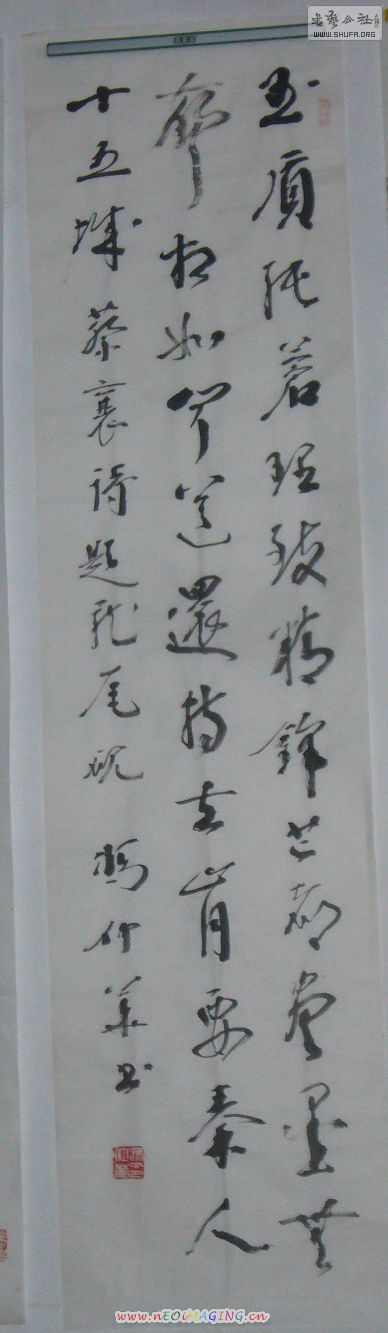 玉質純蒼理致精鋒芒都盡墨無
聲相如聞道還持去肯要秦人
十五城 蔡襄詩題龍尾硯 馮仲華書
書藝公社
WWW.SHUFA.ORG
www.nEOiMAGING.cn